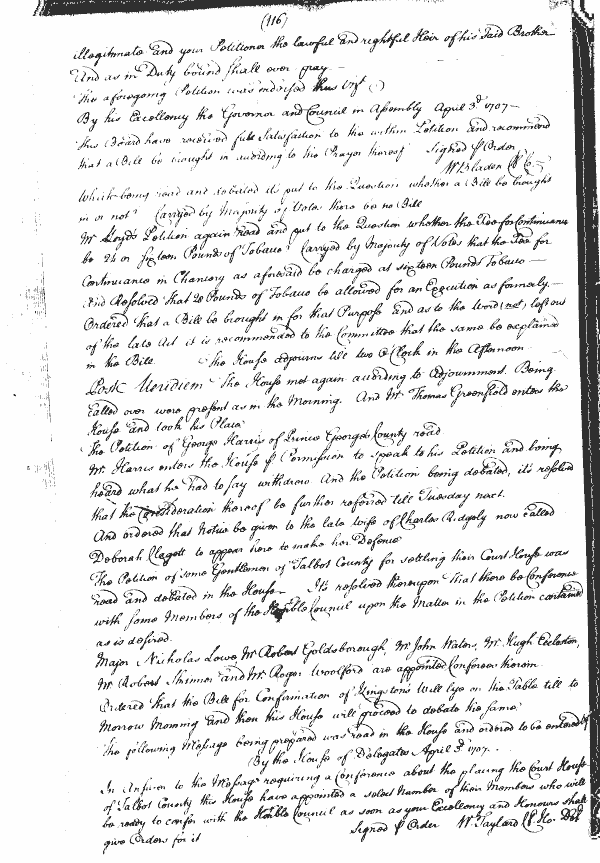 (116)
illegitimate and your Petitioner the lawful and rightful Heir of his Said Brother
And as in Duty bound shall ever pray
The aforegoing Petition was indorsed thus Vizt
By his Excellency the Governor and Council in Assembly April 3d 1707
This Board have received full Satisfaction to the within Petition and recommend
that a Bill be brought in according to the Prayer thereof Signed p Order
W Bladen Cl Co
Which being read and debated its put to the Question whether a Bill be brought
in or not? Carryed by Majority of Votes there be no Bill
Mr Lloyds Petition again read and put to the Question whether the Fee for Continuance
be 24 or Sixteen Pounds of Tobacco? Carryed by Majority of Votes that the Fee for
Continuance in Chancery as aforesaid be charged at sixteen Pounds Tobacco
And Resolved that 20 Pounds of Tobacco be allowed for an Execution as formerly
Ordered that a Bill be brought in for that Purpose and as to the Word (not) left out
of the late Act it is recommended to the Committee that the same be explained
in the Bill. The House adjourns till two O Clock in the Afternoon
Post Meridiem The House met again according to Adjournment. Being
called over were present as in the Morning. And Mr Thomas Greenfield enters the
House and took his Place
The Petition of George Harris of Prince Georges County read
Mr Harris enters the House p Permission to speak to his Petition and being
heard what he had to say withdrew And the Petition being debated, it's resolved
that the Consideration thereof be further referred till Tuesday next.
And ordered that Notice be given to the late wife of Charles Ridgely now called
Deborah Clagett to appear here to make her Defence
The Petition of some Gentlemen of Talbot County for settling their Court House was
read and debated in the House It's resolved thereupon That there be Conference
with some Members of the Honble Council upon the Matter in the Petition contained
as is desired.
Major Nicholas Lowe Mr Robert Goldsborough, Mr John Waters, Mr Hugh Eccleston,
Mr Robert Skinner and Mr Roger Woolford are appointed Conferees therein
Ordered that the Bill for Confirmation of Kingstons Will lye on the Table till to
Morrow Morning and then this House will proceed to debate the same.
The following Message being prepared was read in the House and ordered to be entered
By the House of Delegates April 3d 1707.
In Answer to the Message requiring a Conference about the placing the Court House
of Talbot County this House have appointed a select Number of their Members who will
be ready to confer with the Honble Council as soon as your Excellency and Honours shall
give Orders for it Signed p Order W Taylard Cl Ho. Del